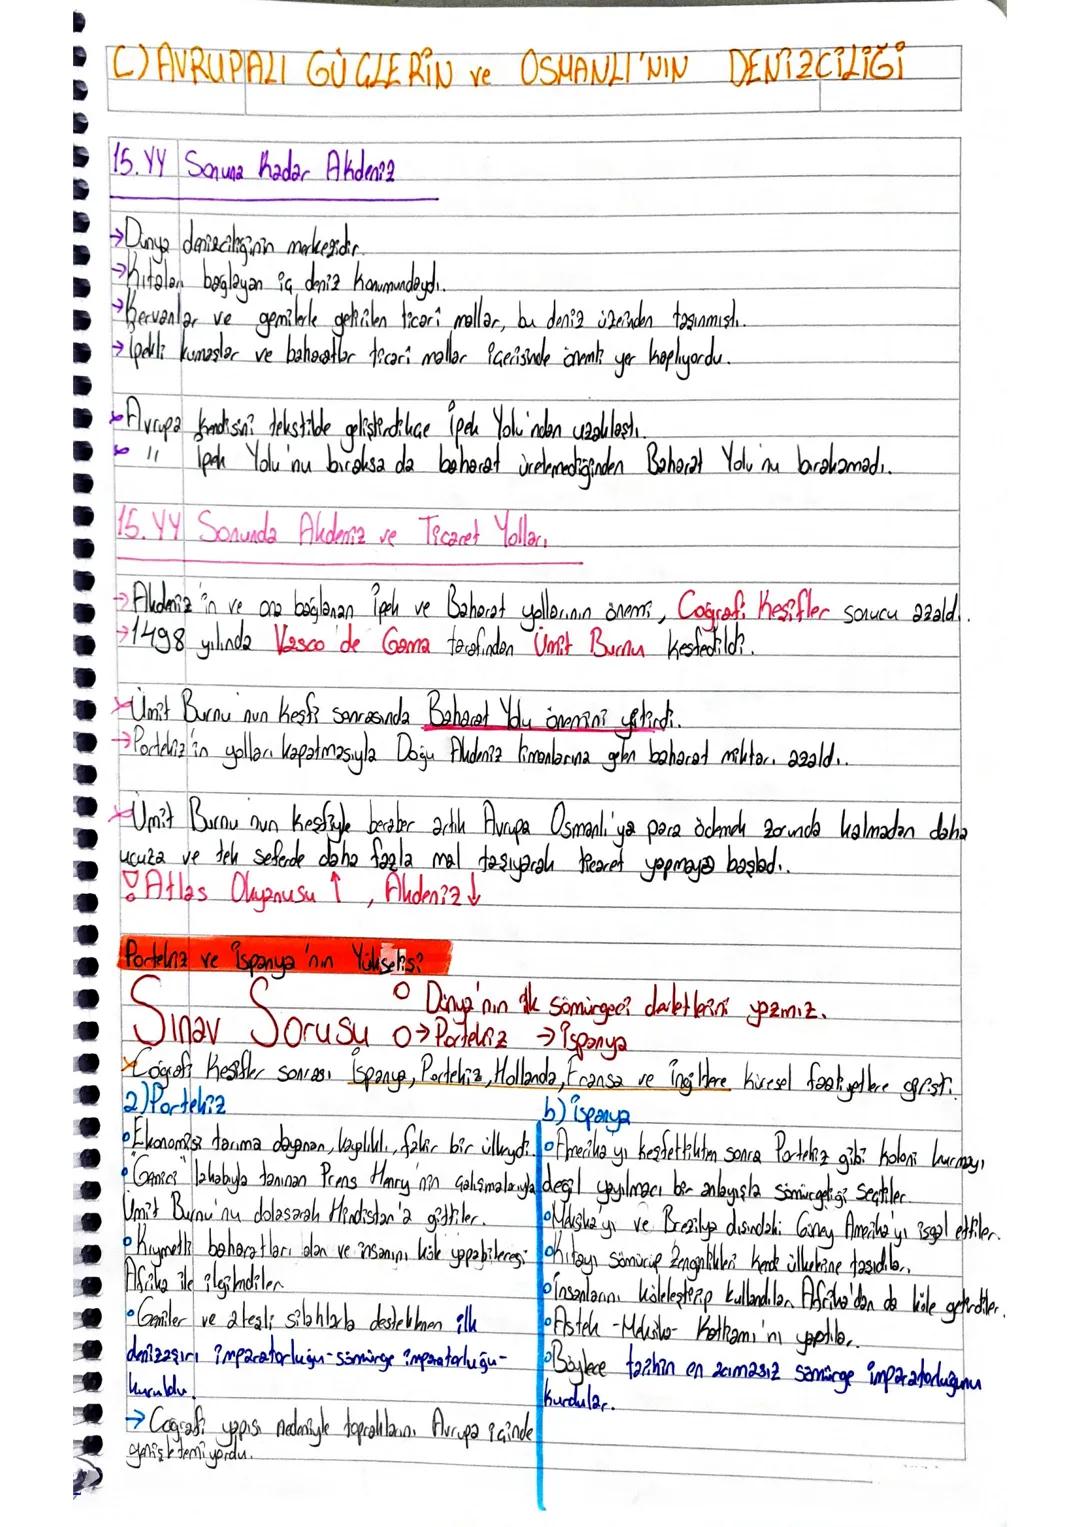 C) AVRUPALI GÜÇLERİN ve OSMANLI'NIN DENİZCİLİĞİ
15. YY Sonuna Kadar Akdeniz
→Dünya denizciliğinin merkezidir.
→Kıtaları bağlayan iç deniz konumundaydı.
→Kervanlar ve gemilerle getirilen ticari mallar, bu deniz üzerinden taşınmıştı.
→İpekli kumaşlar ve baharatlar ticari mallar içerisinde önemli yer kaplıyordu.
Avrupa kendisini tekstilde geliştirdikçe İpek Yolu'ndan uzaklaştı.
" İpek Yolu'nu bıraksa da baharat üretemediğinden Baharat Yolu'nu bırakamadı.
15. YY Sonunda Akdeniz ve Ticaret Yolları
→Akdeniz'in ve ona bağlanan İpek ve Baharat yollarının önemi, Coğrafi Keşifler sonucu azaldı.
→1498 yılında Vasco de Gama tarafından Ümit Burnu keşfedildi.
Ümit Burnu'nun keşfi sonrasında Baharat Yolu önemini yitirdi.
→Portekiz'in yolları kapatmasıyla Doğu Akdeniz limanlarına gelen baharat miktarı azaldı.
Ümit Burnu'nun keşfiyle beraber artık Avrupa Osmanlı'ya para ödemek zorunda kalmadan daha
ucuza ve tek seferde daha fazla mal taşıyarak ticaret yapmaya başladı.
! Atlas Okyanusu ↑, Akdeniz ↓
Portekiz ve İspanya'nın Yükselişi
o Dünya'nın ilk sömürgeci devletlerini yazınız.
Sınav Sorusu o→Portekiz →İspanya
Coğrafi Keşifler sonrası İspanya, Portekiz, Hollanda, Fransa ve İngiltere küresel faaliyetlere girişti.
a) Portekiz
o Ekonomisi tarıma dayanan, kayalıklı, fakir bir ülkeydi.
o "Gemici" lakabıyla tanınan Prens Henry'nin çalışmalarıyla
Ümit Burnu'nu dolaşarak Hindistan'a gittiler.
o Kıymetli baharatları alan ve insanını köle yapabileceği
Afrika ile ilgilendiler.
o Gemiler ve ateşli silahlarla desteklenen ilk
denizaşırı imparatorluğu-sömürge imparatorluğu-
kuruldu.
→ Coğrafi yapısı nedeniyle topraklarını Avrupa içinde
genişletemiyordu.
b) İspanya
o Amerika'yı keşfettikten sonra Portekiz gibi koloni kurmayı
değil yayılmacı bir anlayışla sömürgeciliği seçtiler.
o Meksika'yı ve Brezilya dışındaki Güney Amerika'yı işgal ettiler.
o Kıtayı sömürüp zenginlikleri kendi ülkelerine taşıdılar.
o İnsanlarını köleleştirip kullandılar. Afrika'dan da köle getirdiler.
o Aztek -Meksika- Katliamı'nı yaptılar.
o Böylece tarihin en acımasız sömürge imparatorluğunu
kurdular.